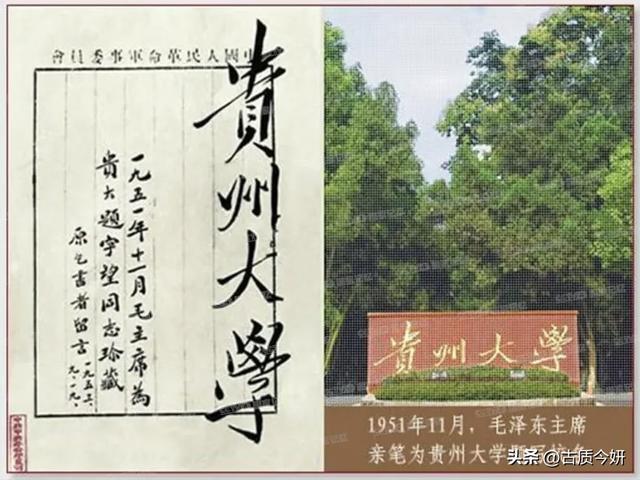 中國人民革命軍事委員會
貴州大學
一九五一年十一月毛主席為
貴大題字望同志珍藏
原乞書者留言
一九五三、
九、一九、
貴州大學
1951年11月，毛泽东主席
亲笔为贵州大学题写校名
头条 @古质今妍